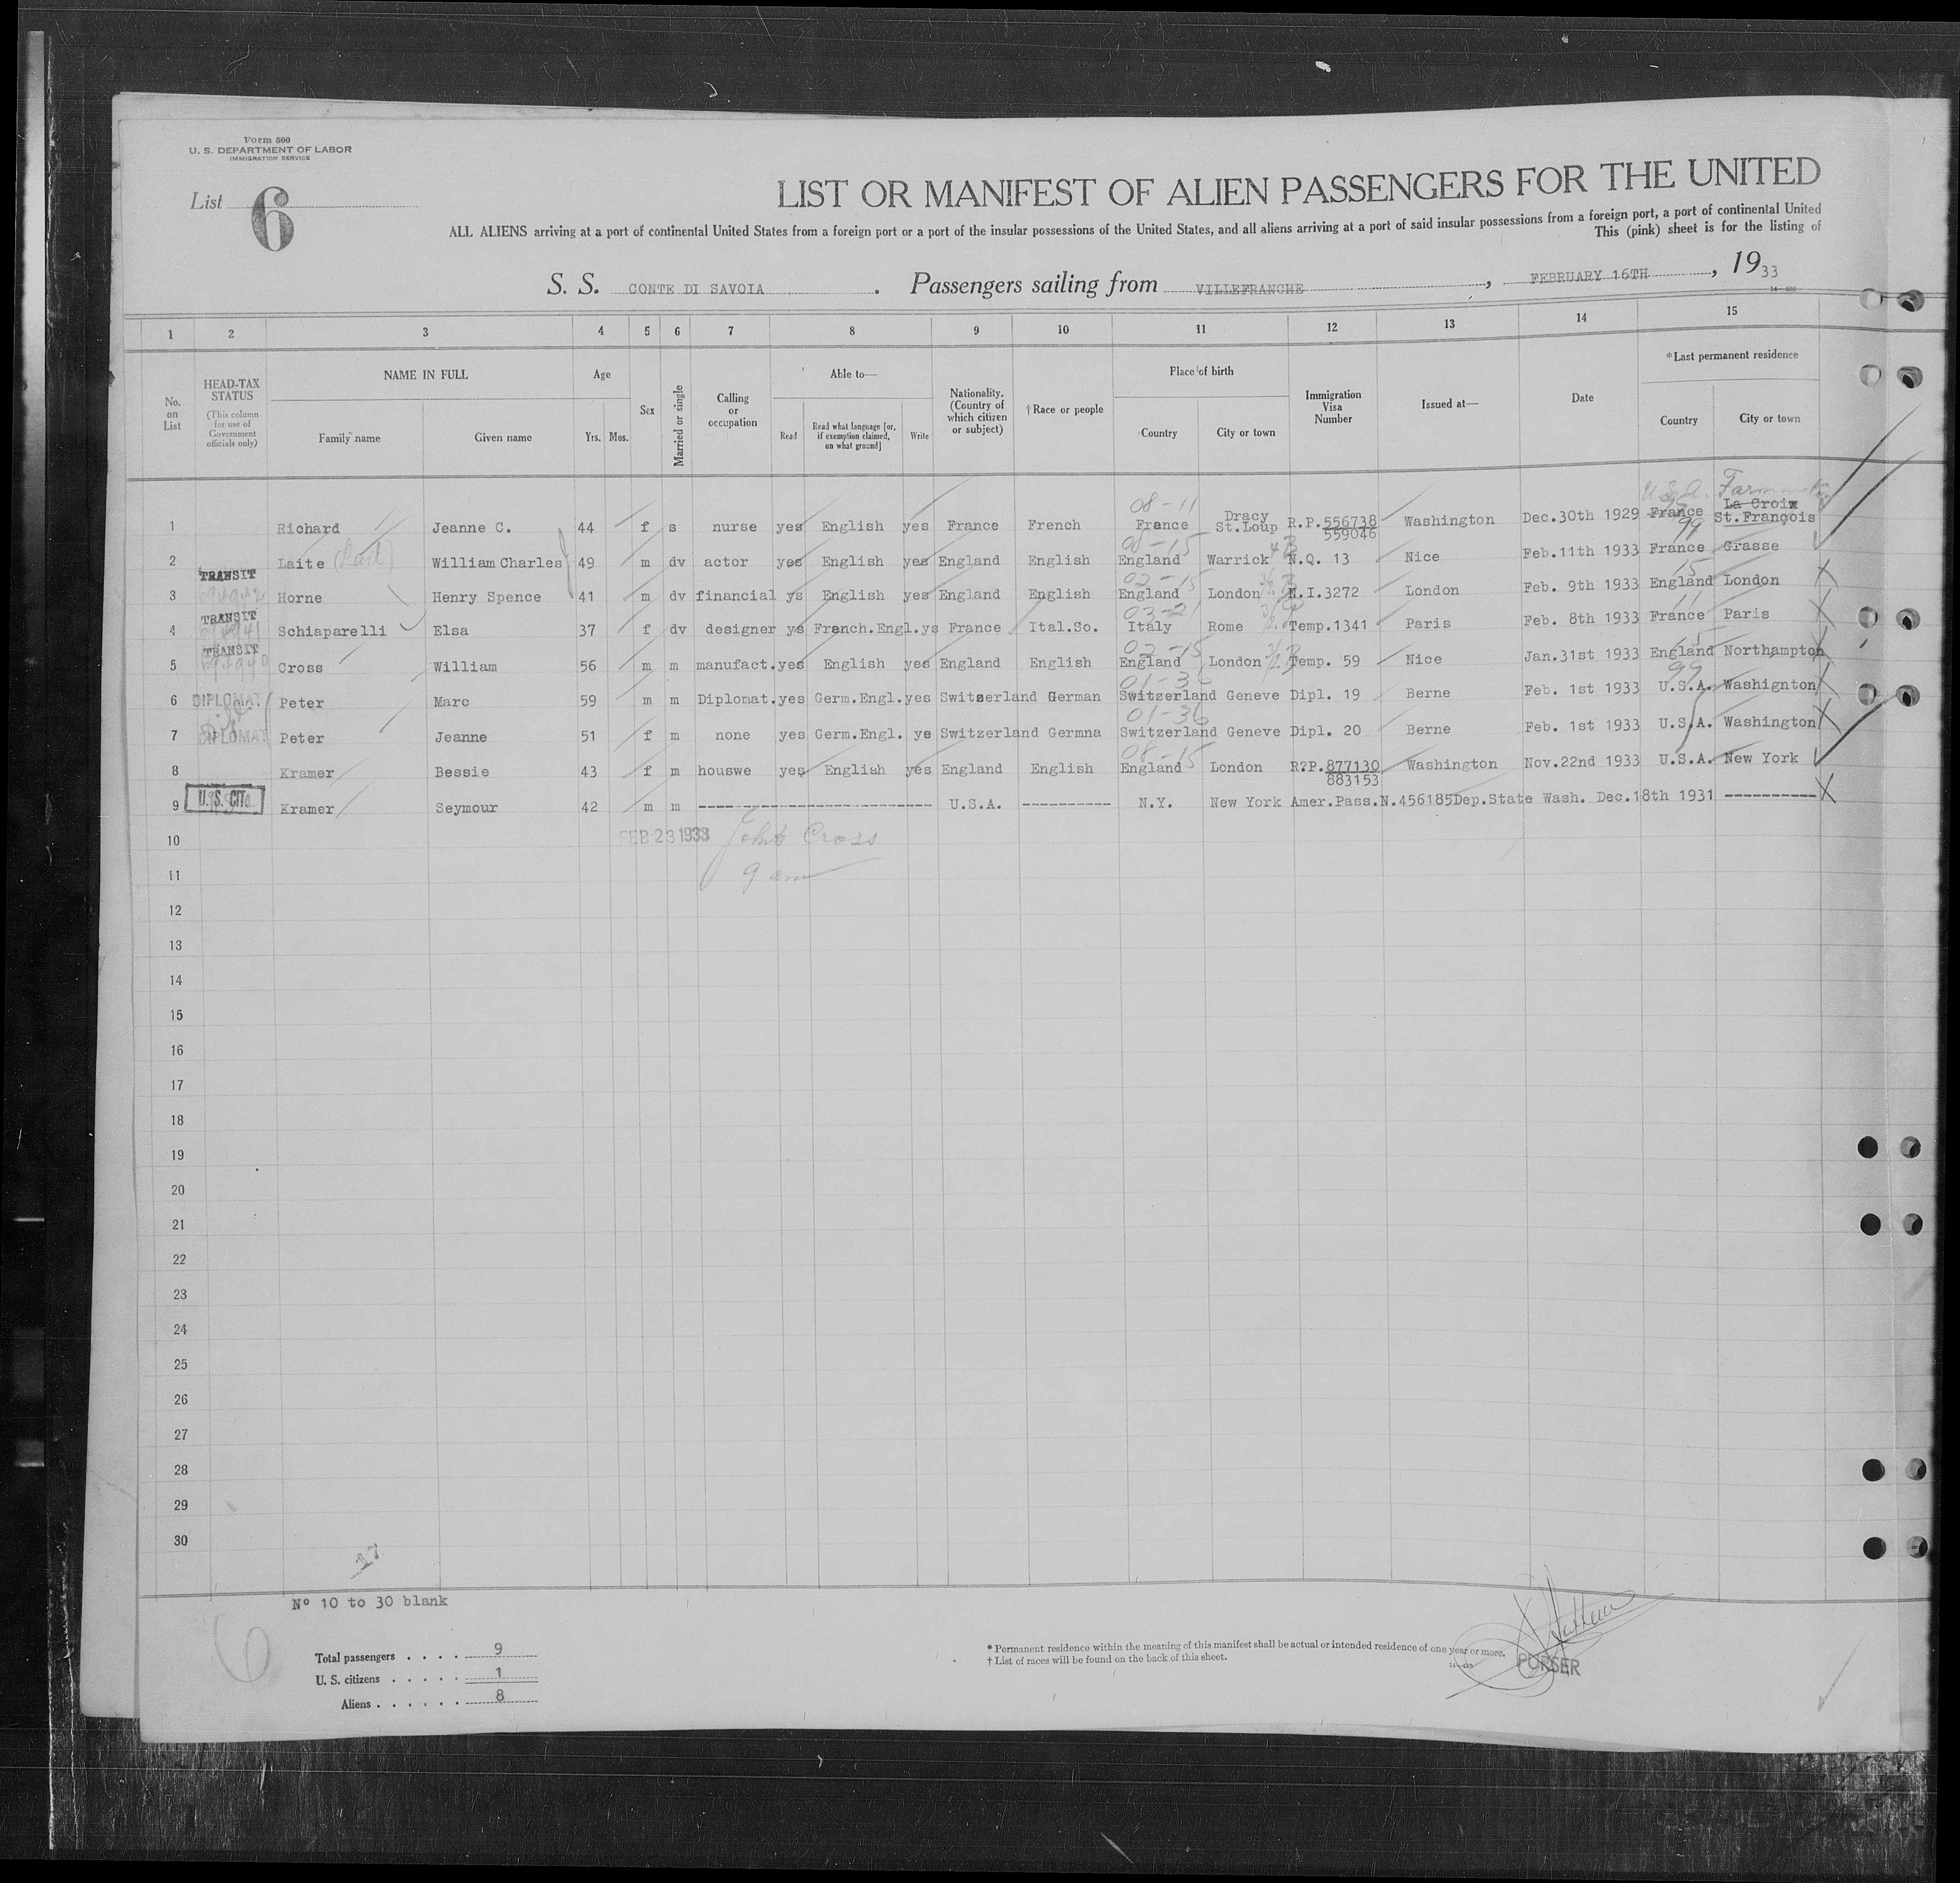 Form 500
U. S. DEPARTMENT OF LABOR
IMMIGRATION SERVICE
List 6
LIST OR MANIFEST OF ALIEN PASSENGERS FOR THE UNITED
ALL ALIENS arriving at a port of continental United States from a foreign port or a port of the insular possessions of the United States, and all aliens arriving at a port of said insular possessions from a foreign port, a port of continental United
This (pink) sheet is for the listing of
S. S. CONTE DI SAVOIA . Passengers sailing from VILLEFRANCHE , FEBRUARY 16TH , 1933
1 2 3 4 5 6 7 8 9 10 11 12 13 14 15
No. on List
HEAD-TAX STATUS
(This column for use of Government officials only)
NAME IN FULL
Family name Given name
Age
Yrs. Mos.
Sex
Married or single
Calling or occupation
Able to—
Read
Read what language [or, if exemption claimed, on what ground]
Write
Nationality. (Country of which citizen or subject)
† Race or people
Place of birth
Country City or town
Immigration Visa Number
Issued at—
Date
* Last permanent residence
Country City or town
08-11 U.S.A.
1 Richard Jeanne C. 44 f s nurse yes English yes France French France Dracy St.Loup R.P.556738 559046 Washington Dec.30th 1929 France La Croix St.François
08-15 99
2 Laite (Lait) William Charles 49 m dv actor yes English yes England English England Warrick N.Q. 13 Nice Feb.11th 1933 France Grasse
TRANSIT 02-15 15
3 Horne Henry Spence 41 m dv financial ys English yes England English England London N.I.3272 London Feb. 9th 1933 England London
TRANSIT 03-21 11
4 Schiaparelli Elsa 37 f dv designer ys French.Engl.ys France Ital.So. Italy Rome Temp.1341 Paris Feb. 8th 1933 France Paris
TRANSIT 02-15 15
5 Cross William 56 m m manufact.yes English yes England English England London Temp. 59 Nice Jan.31st 1933 England Northampton
01-36 99
6 DIPLOMAT Peter Marc 59 m m Diplomat.yes Germ.Engl.yes Switserland German Switzerland Geneve Dipl. 19 Berne Feb. 1st 1933 U.S.A. Washignton
01-36
7 DIPLOMAT Peter Jeanne 51 f m none yes Germ.Engl. ye Switzerland Germna Switzerland Geneve Dipl. 20 Berne Feb. 1st 1933 U.S.A. Washington
08-15
8 Kramer Bessie 43 f m houswe yes English yes England English England London R.P.877130 883153 Washington Nov.22nd 1933 U.S.A. New York
9 U. S. CIT. Kramer Seymour 42 m m ---------- U.S.A. ---------- N.Y. New York Amer.Pass.N.456185Dep.State Wash. Dec.18th 1931 ----------
10 FEB 23 1933 Cross
11 9 am
12
13
14
15
16
17
18
19
20
21
22
23
24
25
26
27
28
29
30
Nº 10 to 30 blank
6
Total passengers . . . . 9
U. S. citizens . . . . . 1
Aliens . . . . . . 8
* Permanent residence within the meaning of this manifest shall be actual or intended residence of one year or more.
† List of races will be found on the back of this sheet.
PURSER